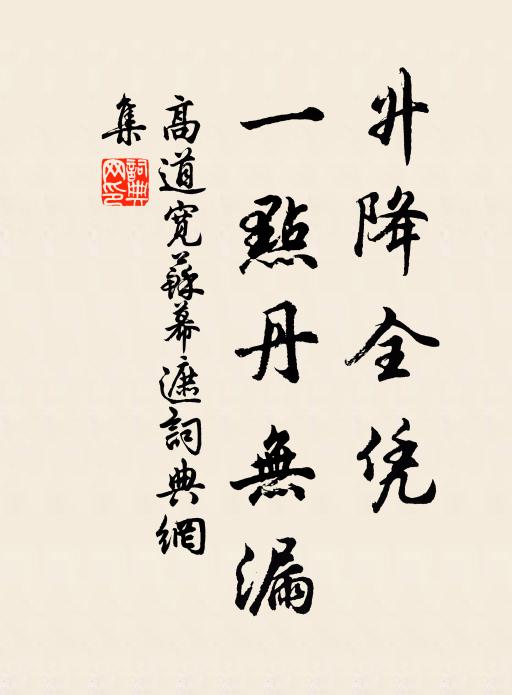 升降全凭
一點丹無漏
高道寛蘇幕遮詞典網
集
詞典
网印